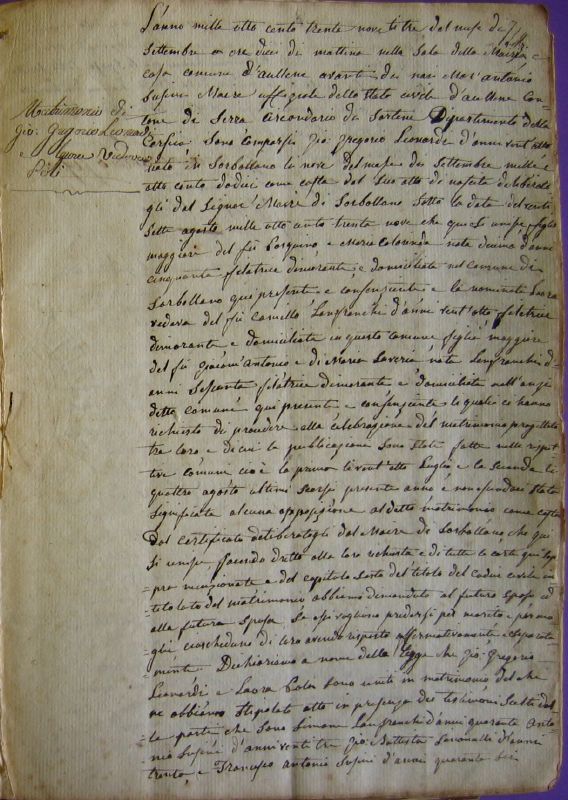 Matrimonio di
Gio: Gregorio Leonardi
e Laora Vedova
Poli
L'anno mille otto cento trenta nove li tre del mese di
Settembre a ore dieci di mattina nella Sala della Mairia e
casa comune d'aullene avanti di noi Mar'antonio
Susini Maire uffiziale dello Stato civile d'aullene Can
tone di Serra Circondario di Sartene Dipartimento della
Corsica, Sono Comparsi Gio: Gregorio Leonardi d'anni vent'otto
nato in Sorbollano li nove del mese di Settembre mille
otto cento dodici come costa dal Suo atto di nascita deliberato
gli dal Signor Maire di Sorbollano Sotto la data del venti
Sette agosto mille otto cento trenta nove che qui si unisce figlio
maggiore del fù Pasquino e Maria Colomba nata d'anni
cinquanta filatrice dimorante e domiciliata nel comune di
Sorbollano qui presente e consenziente e la nominata Laora
vedova del fù Camillo Lanfranchi d'anni vent'otto filatrice
dimorante e domiciliata in questo comune figlia maggiore
del fù Giacom'Antonio e di Maria Saveria nata Lanfranchi d'
anni Sessanta filatrice dimorante e domiciliata nell'anzi
detto comune qui presente e consenziente li quali ci hanno
richiesto di procedere alla celebrazione del matrimonio progettato
tra loro e di cui le pubblicazione Sono State fatte nelle rispet
tive comuni cioè la prima li vent'otto Luglio e la Seconda li
quattro agosto ultimi Scorsi presente anno e non essendoci Stata
Significata alcuna opposizione al detto matrimonio come costa
dal certificato deliberatogli dal Maire di Sorbollano che qui
Si unisce facendo dritto alla loro richiesta e di tutte le carte qui So
pra menzionate e del capitolo Sesto del titolo del codice civile in
titolato del matrimonio abbiamo domandato al futuro Sposo ed
alla futura Sposa Se essi vogliono prendersi per marito e per mo
glie ciascheduno di loro avendo risposto affermativamente e Separata
mente Dichiariamo a nome della Legge che Gio: Gregorio
Leonardi e Laora Poli Sono uniti in matrimonio del che
ne abbiamo Stipolato atto in presenza dei testimoni Scelti dal
le parte che Sono Simone Lanfranchi d'anni quaranta Anto
nio Susini d'anni venti tre Gio: Battista d'anni
trenta e Francesco Antonio Susini d'anni quaranta Sei